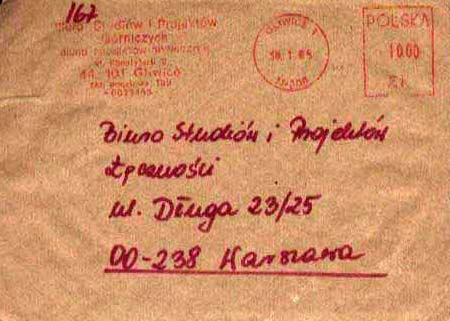 167
Biuro Studiów i Projektów
Górniczych
44-101 Gliwice
GLIWICE 1
POLSKA
1000
ZŁ
Biuro Studiów i Projektów
Łączności
ul. Długa 23/25
00-238 Warszawa